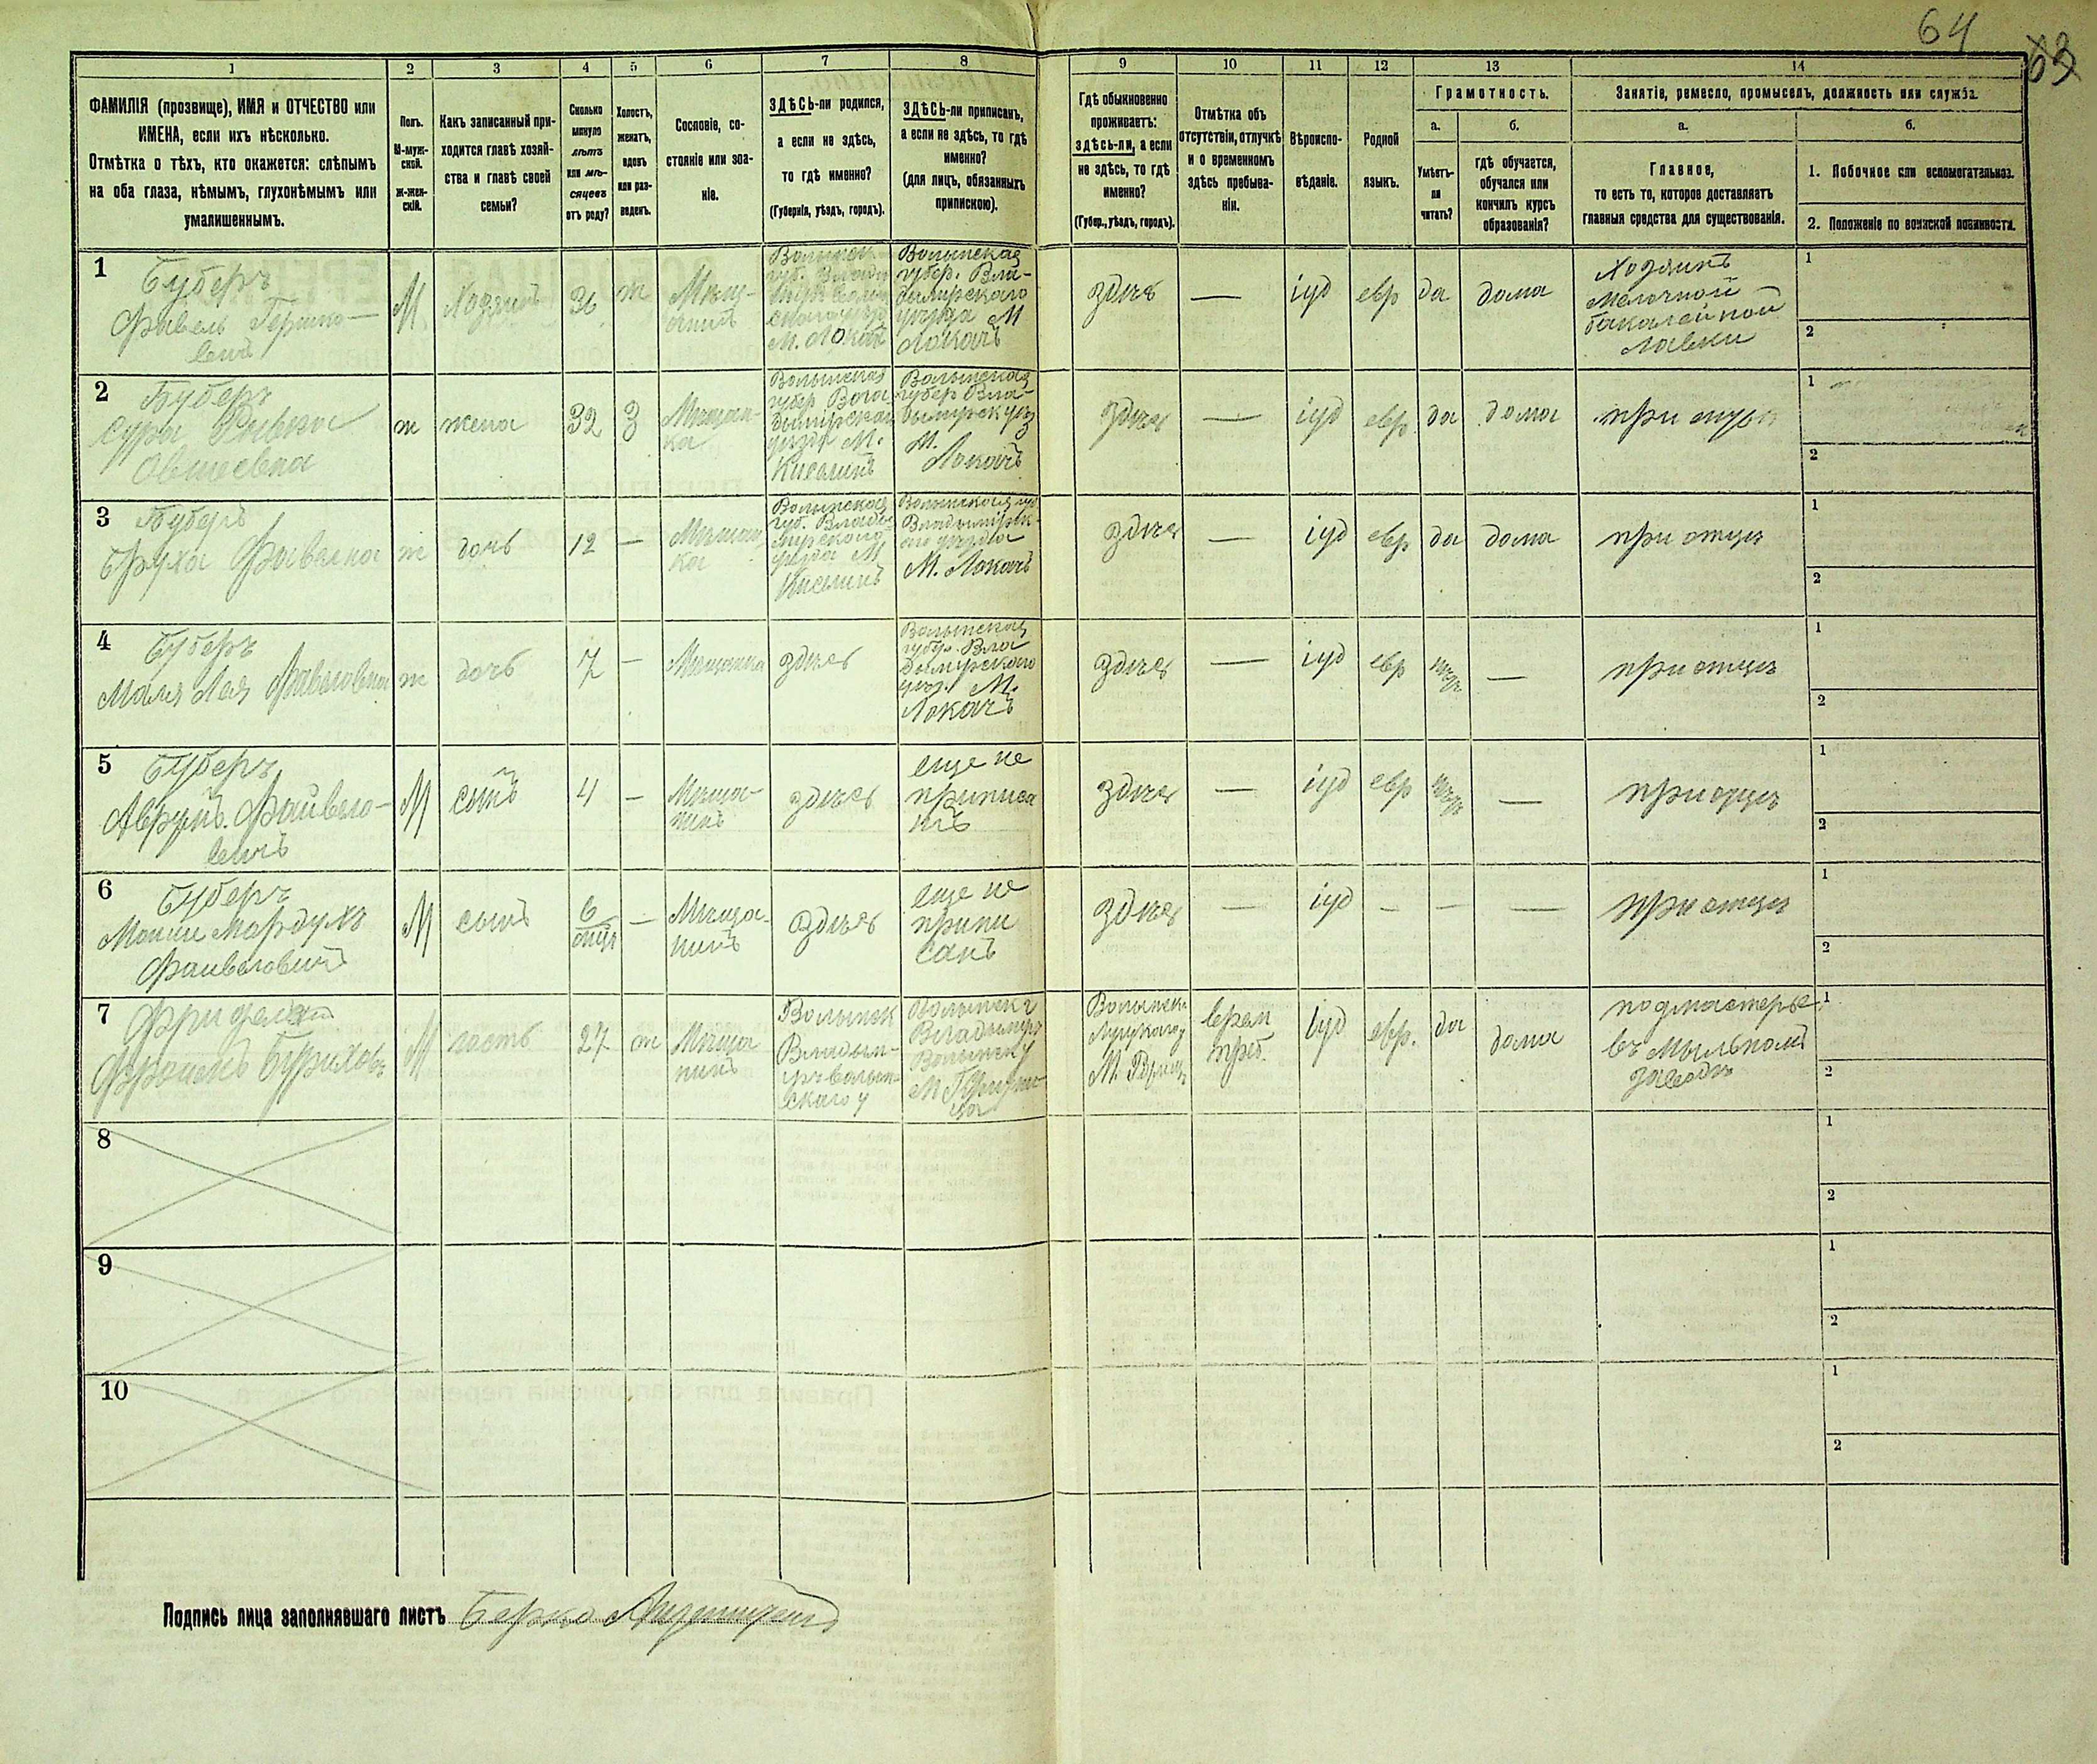 64
63
1 2 3 4 5 6 7 8 9 10 11 12 13 14
ФАМИЛІЯ (прозвище), ИМЯ и ОТЧЕСТВО или
ИМЕНА, если ихъ нѣсколько.
Отмѣтка о тѣхъ, кто окажется: слѣпымъ
на оба глаза, нѣмымъ, глухонѣмымъ или
умалишеннымъ.
Полъ.
М-муж-
ской.
ж-жен-
скій.
Какъ записанный при-
ходится главѣ хозяй-
ства и главѣ своей
семьи?
Сколько
минуло
лѣтъ
или мѣ-
сяцевъ
отъ роду?
Холостъ,
женатъ,
вдовъ
или раз-
веденъ.
Сословіе, со-
стояніе или зва-
ніе.
ЗДѢСЬ-ли родился,
а если не здѣсь,
то гдѣ именно?
(Губернія, уѣздъ, городъ).
ЗДѢСЬ-ли приписанъ,
а если не здѣсь, то гдѣ
именно?
(для лицъ, обязанныхъ
припискою).
Гдѣ обыкновенно
проживаетъ:
здѣсь-ли, а если
не здѣсь, то гдѣ
именно?
(Губер., уѣздъ, городъ).
Отмѣтка объ
отсутствіи, отлучкѣ
и о временномъ
здѣсь пребыва-
ніи.
Вѣроиспо-
вѣданіе.
Родной
языкъ.
Грамотность.
а.
Умѣетъ-
ли
читать?
б.
гдѣ обучается,
обучался или
кончилъ курсъ
образованія?
Занятіе, ремесло, промыселъ, должность или служба.
а.
Главное,
то есть то, которое доставляетъ
главныя средства для существованія.
б.
1. Побочное или вспомогательное.
2. Положеніе по воинской повинности.
1
Буберъ
Фавель Гершко-
вичъ
М
Хозяинъ
36
ж
Мѣщ-
анинъ
М. Локачъ
Волынская
губер. Вла-
димирскаго
уѣзда М
Локачъ
здѣсь
—
іуд
евр
да
дома
Хозяинъ
мелочной
бакалейной
лавки
1
2
2
Буберъ
Сура Ривка
Овшеевна
ж
жена
32
З
Мѣщан-
ка
Волынская
губер Вла-
димирскаго
уѣзда М.
Киселинъ
Волынская
губер Вла-
димирск уѣз
М.
Локачъ
здѣсь
—
іуд
евр
да
дома
при мужѣ
1
2
3
Буберъ
Бруха Фавелна
ж
дочь
12
—
Мѣщан
ка
Волынская
губ. Влади-
мирскаго
уѣзда М
Киселинъ
Волынская губ
Владимірск-
аго уѣзда
М. Локачъ
здѣсь
—
іуд
евр
да
дома
при отцѣ
1
2
4
Буберъ
Маля Лея Фавеловна
ж
дочь
7
—
Мѣщанка
здѣсь
Волынская
губер. Вла
димирскаго
уѣз. М.
Локачъ
здѣсь
—
іуд
евр
—
при отцѣ
1
2
5
Буберъ
Аврумъ Файвело-
вичъ
М
сынъ
4
—
Мѣща-
нинъ
здѣсь
еще не
приписа
нъ
здѣсь
—
іуд
евр
—
при отцѣ
1
2
6
Буберъ
Мошии Мордухъ
Фаивеловичъ
М
сынъ
6
мѣся
—
Мѣща-
нинъ
здѣсь
еще не
припи
санъ
здѣсь
—
іуд
—
—
—
при отцѣ
1
2
7
М
гость
27
ж
Мѣща
нинъ
Волынск
Владим-
іръ волын-
скаго у
Волынск г
Владимиръ
Волынск у
Волынск
Луцкаго у
врем
преб.
іуд
евр.
да
дома
подмастерье
въ Мыльномъ
заводѣ
1
2
8
1
2
9
1
2
10
1
2
Подпись лица заполнявшаго листъ Берко